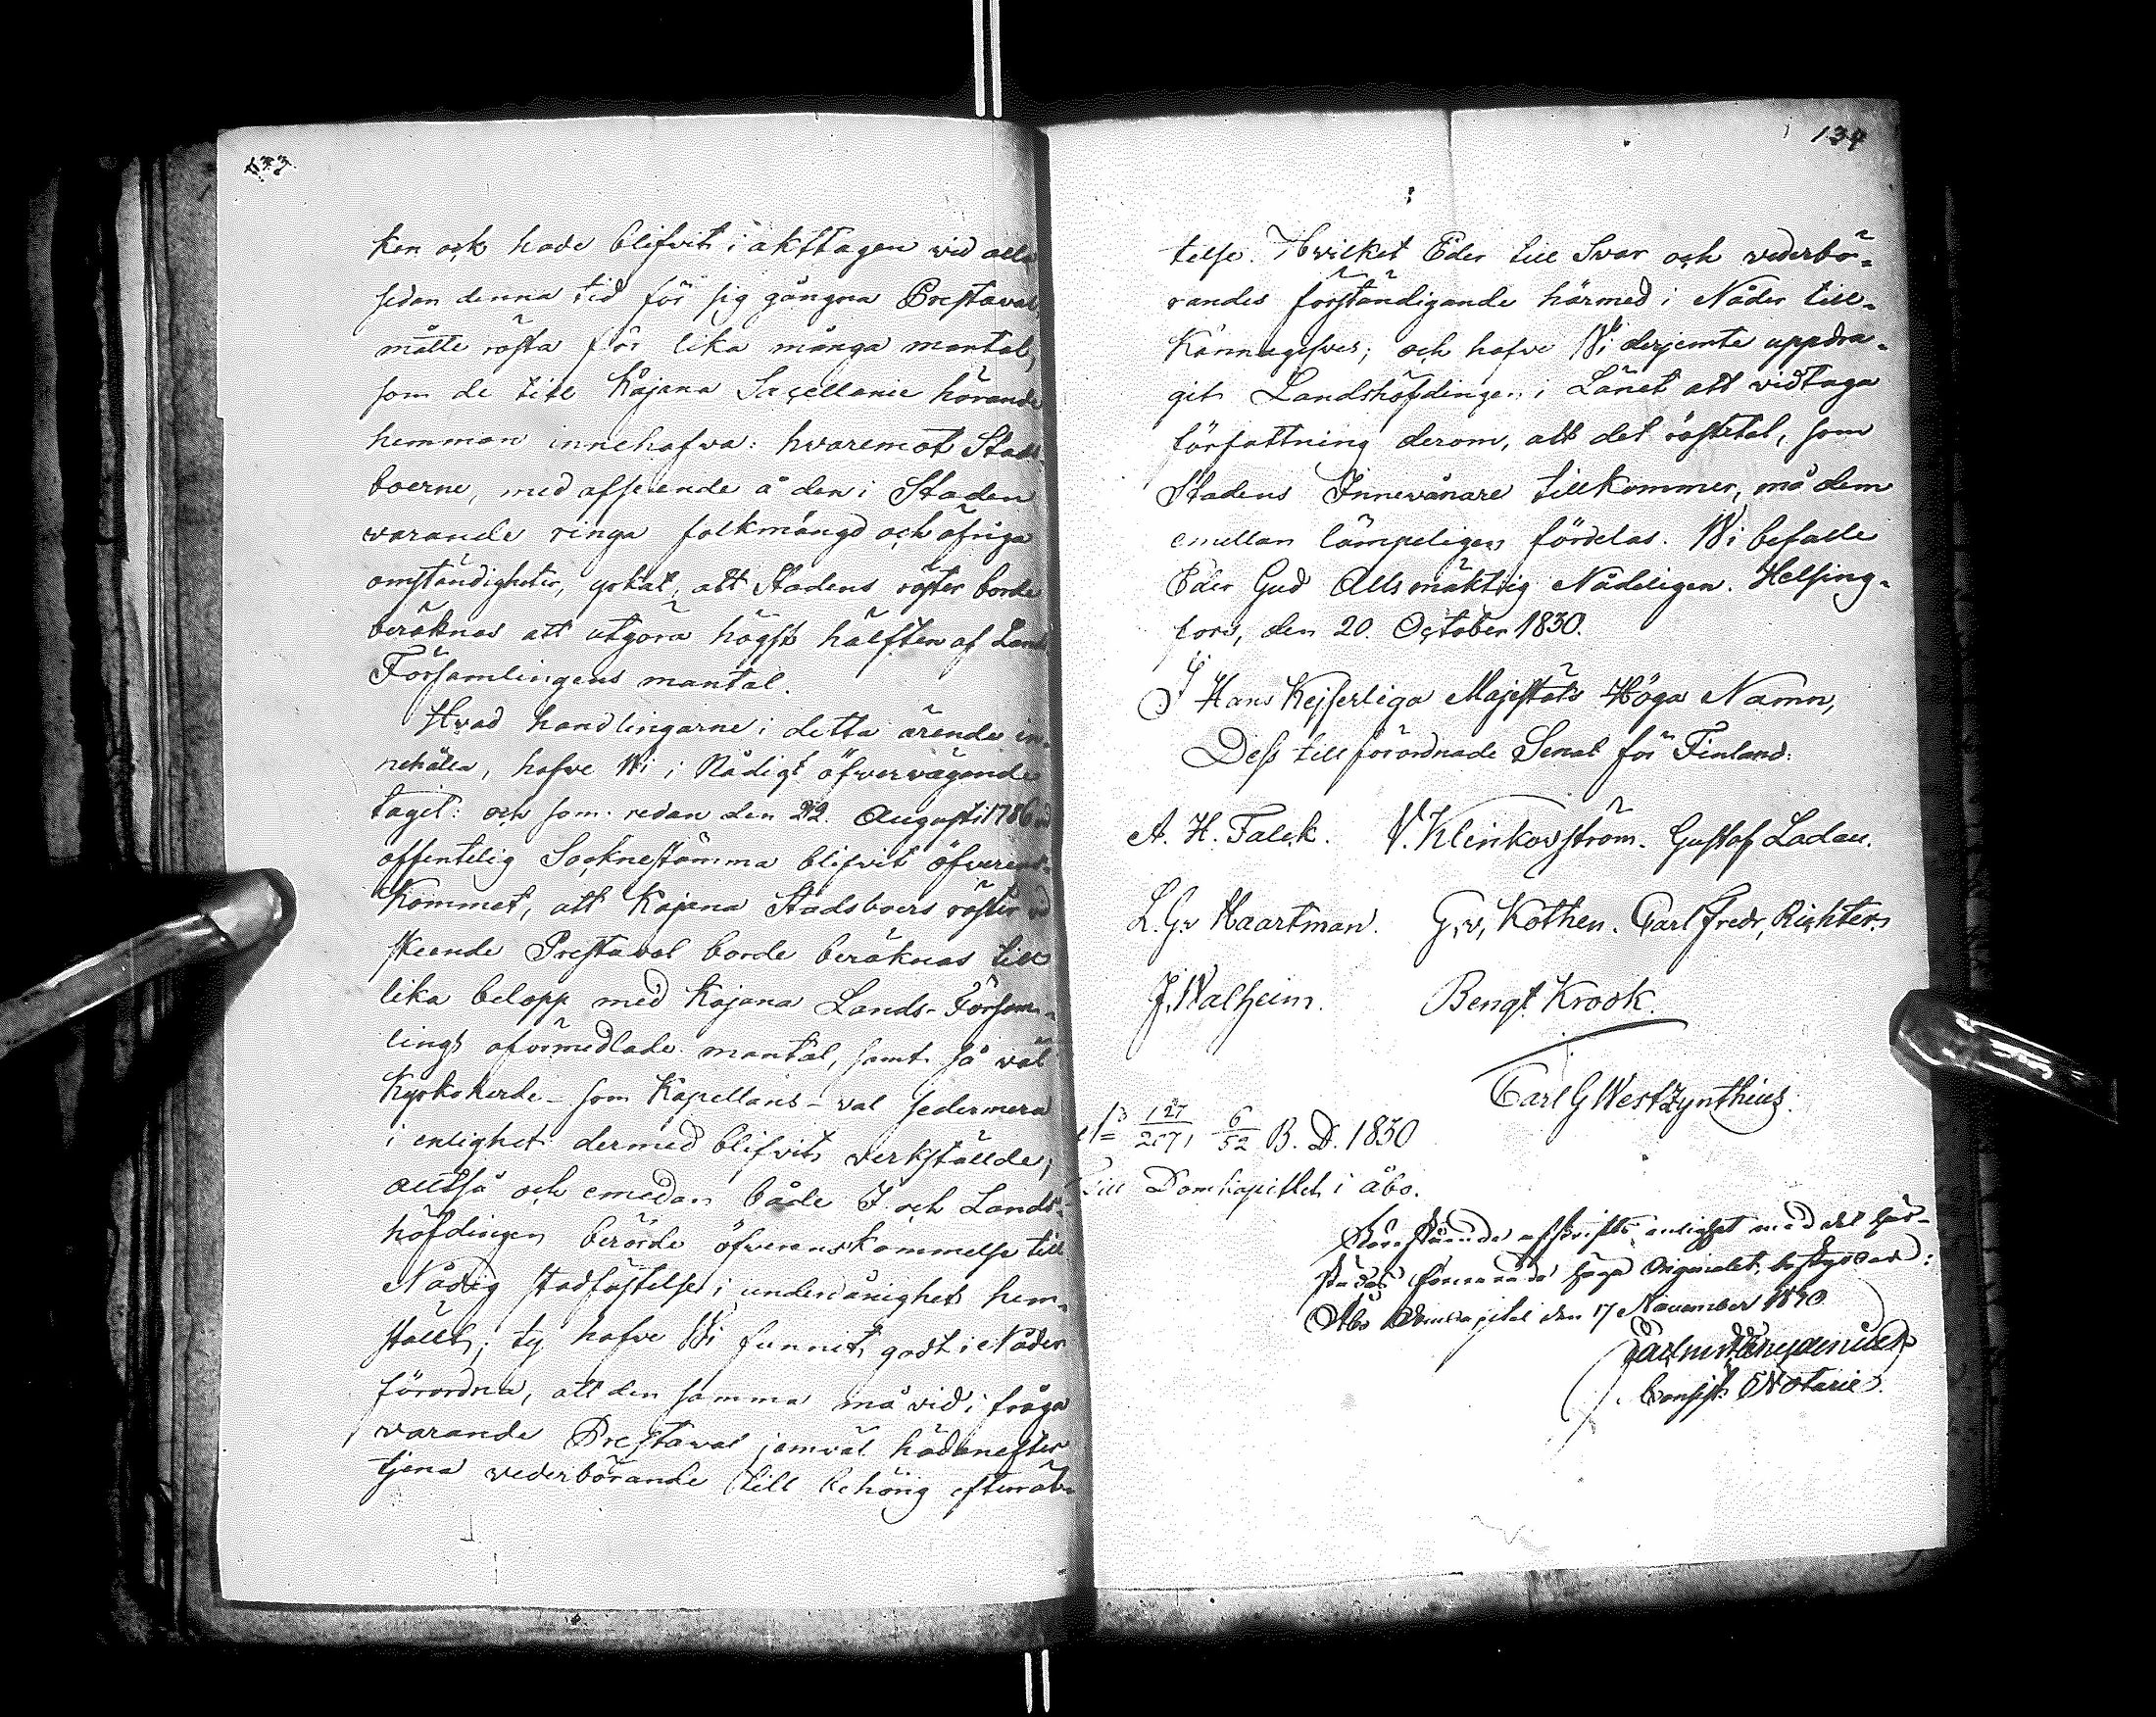 133
ken ock hade blifvit i akttagen vid alla
sedan denna tid för sig gångna Prestaval,
måtte rösta för lika många mantal,
som de till Kajana Sacellanie hörande
hemman innehafva: hvaremot Stads-
boerne, med afseende å den i Staden
warande ringa folkmängd och öfriga
omständigheter, yrkat, att Stadens röster borde
beräknas att utgöra högst hälften af Lands
Församlingens mantal.
Hvad handlingarne i detta ärende in-
nehålla, hafve Wi i Nådigt öfvervägande
tagit: och som redan den 22. Augusti 1786 vid
offentelig Socknestämma blifvit öfverens-
kommet, att Kajana Stadsboers röster vid
skeende Prestaval borde beräknas till
lika belopp med Kajana Lands-Försam-
lings oförmedlade mantal, samt så väl
Kyrkoherde- som Kapellans-val sedermera
i enlighet dermed blifvit verkstälde;
alltså och emedan både I och Lands-
höfdingen berörde öfverenskommelse till
Nådig stadfästelse i underdånighet hem-
stält; ty hafve Wi funnit godt i Nåder
förordna, att den samma må vid i fråga
varande Prestaval jemväl hädanefter
tjena vederbörande till behörig efterrät-
134
telse. Hvilket Eder till Svar och vederbö-
randes förständigande härmed i Nåder till-
kännagifves; och hafve Wi derjemte uppdra-
git Landshöfdingen i Länet att vidtaga
författning derom, att det röstetal, som
Stadens Innevånare tillkommer, må dem
emellan lämpeligen fördelas. Wi befalle
Eder Gud Allsmäktig Nådeligen. Helsing-
fors, den 20. October 1830.
I Hans Kejserliga Majestäts Höga Namn,
Dess tillförordnade Senat för Finland:
A. H. Falck. V. Klinkowström. Gustaf Ladau.
L. G. v Haartman. G. v, Kothen. Carl Fredr, Richter.
J. Walheim. Bengt Krook.
Carl G Westzynthius.
127/2071 6/52 B. D. 1830
Till Domkapitlet i Åbo.
Förestående afskrifts enlighet med det här-
städes förvarade höga Originalet, betygar:
Åbo Domkapitel den 17 November 1830
Consist. Notarie.